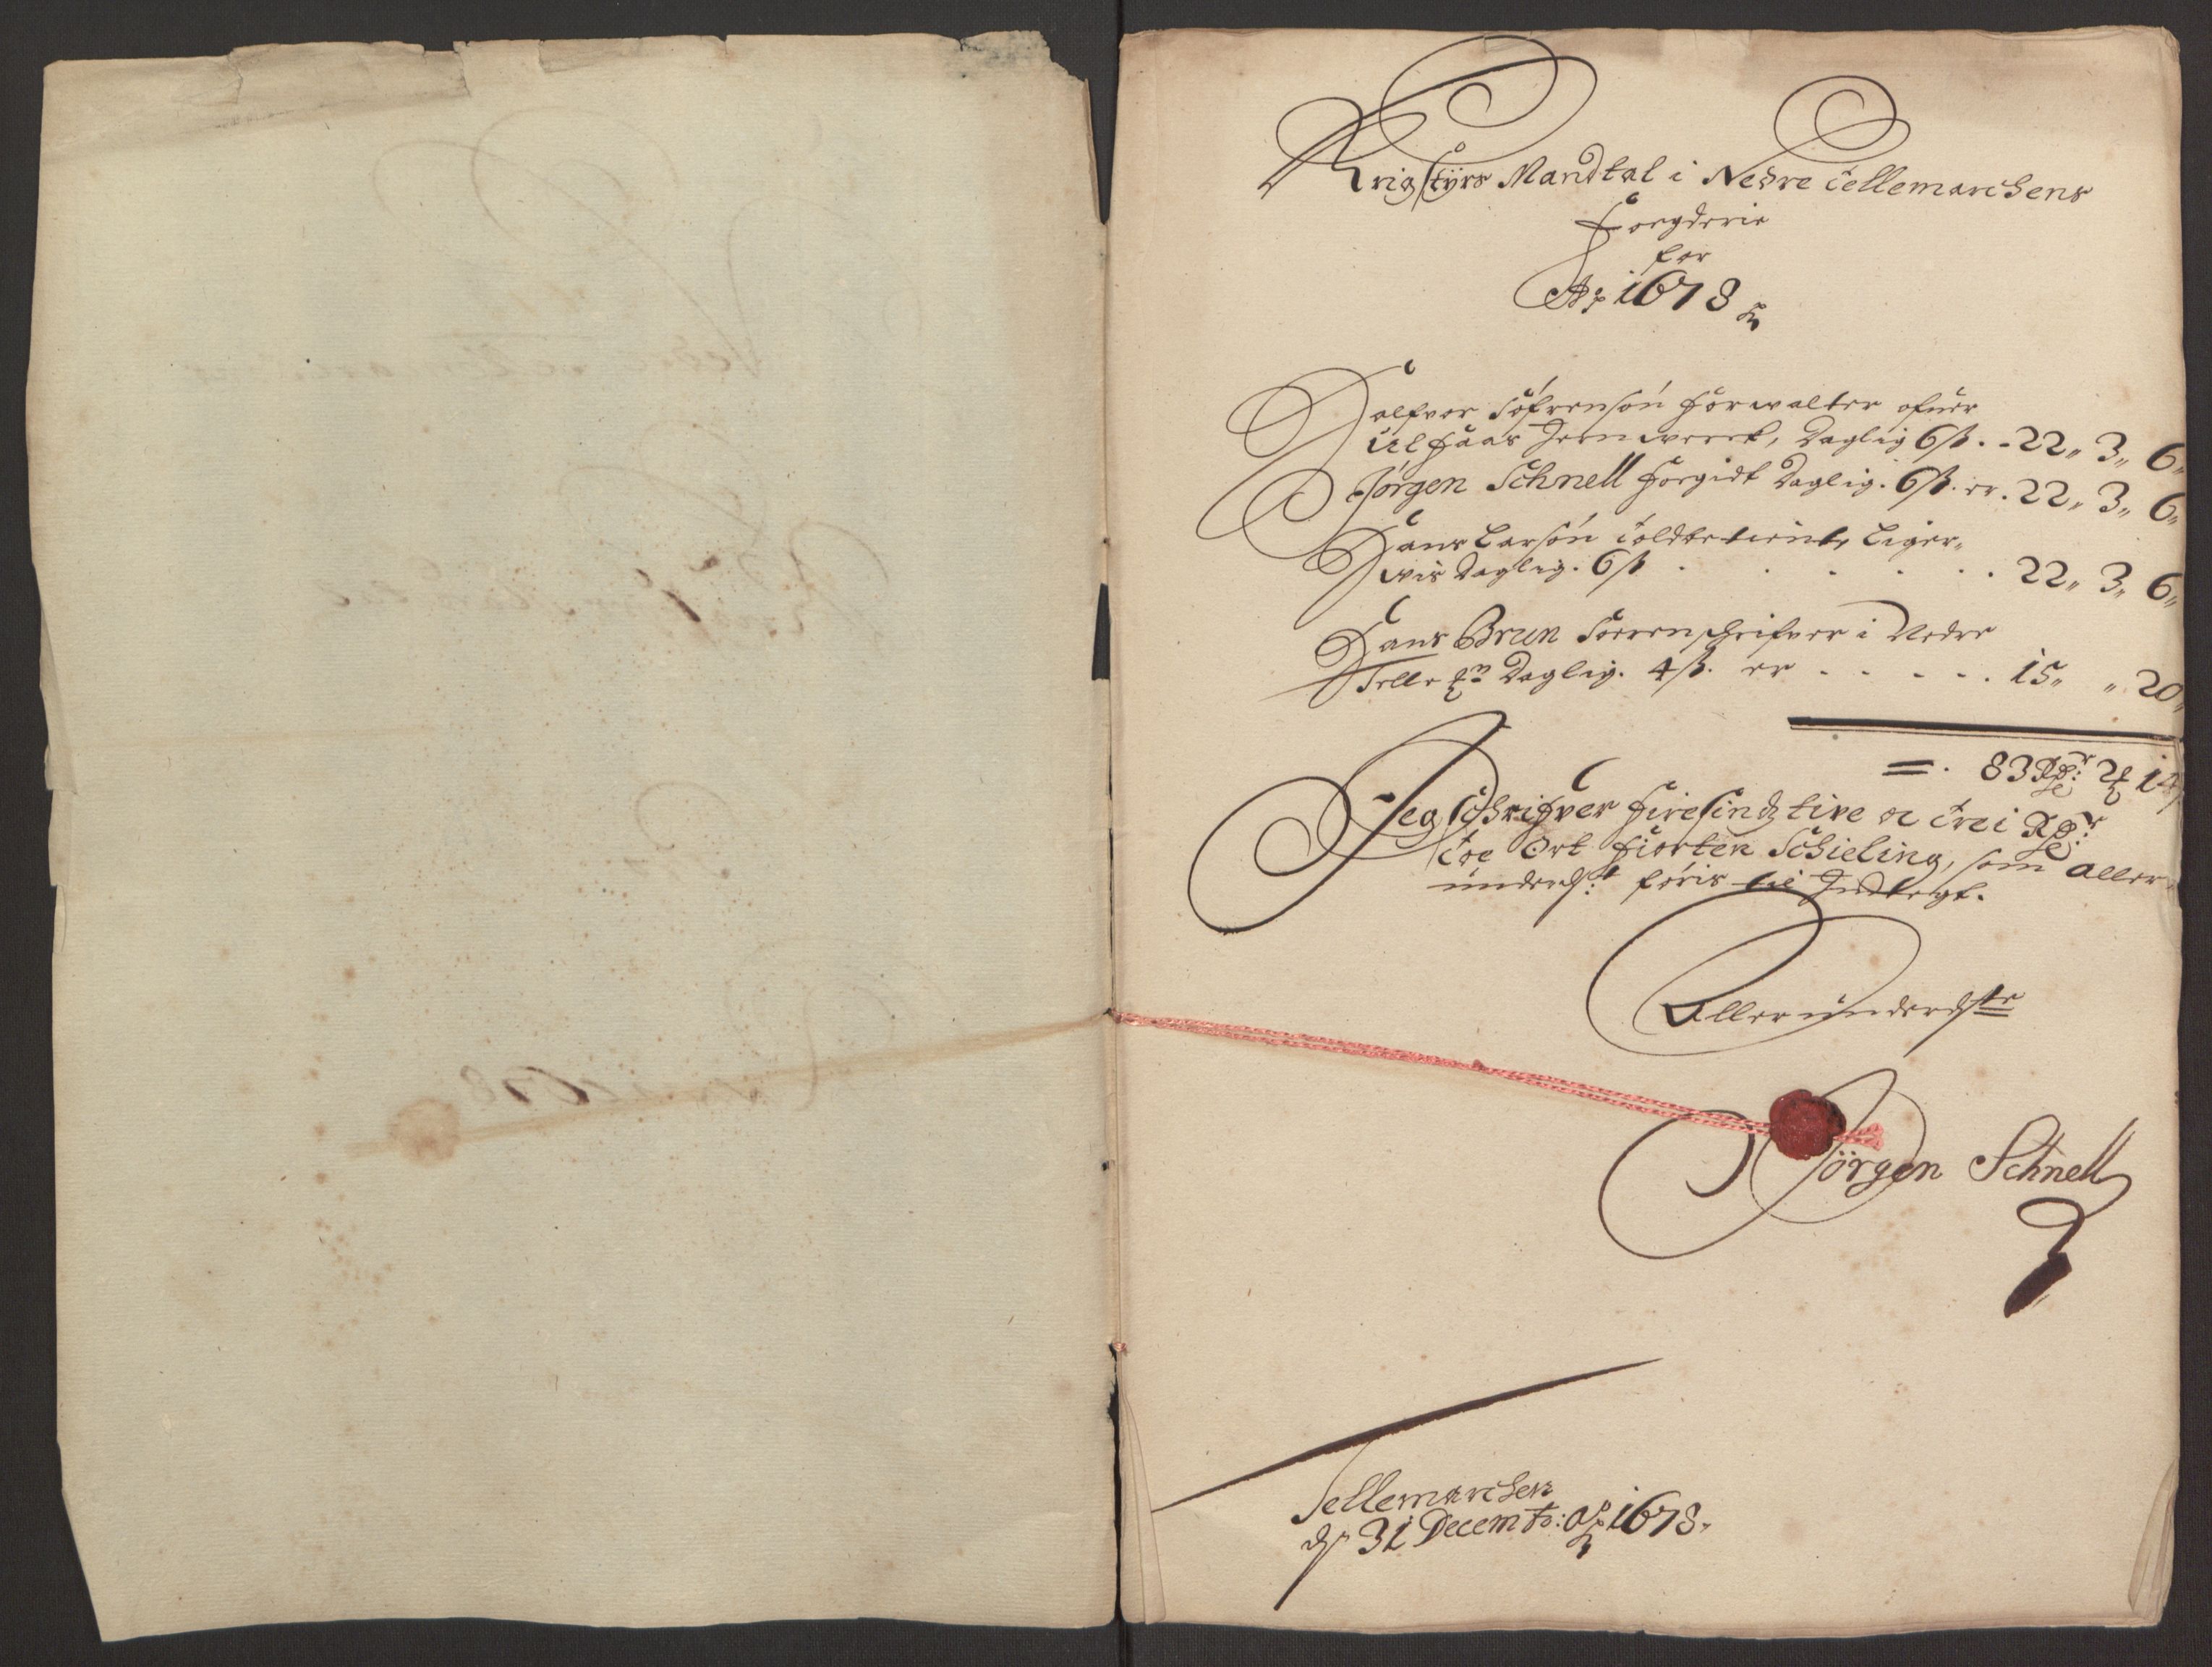 Krigstyrs Mandtal i Nedre Tellemarchens
Foegderie
for
Ao 1678
Halfvor Söfrensön Forvalter ofuer
Ulefaas Jernwerck, Daglig 6 ß. - 22 „ 3 „ 6 „
Jörgen Schnell Forgidt Daglig. 6 ß. er. 22 „ 3 „ 6 „
Hans Larsön Toldbetient, Liger„
wis Daglig. 6 ß . . . . . . 22 „ 3 „ 6 „
Hans Brun Sorrenschrifver i Nedre
Telle Daglig. 4 ß. er . . . . . 15 „ „ 20 „
= . 83 Rdr: 2 14
Jeg Schrifver Firesindz tive oc trei Rdr:
toe Ort Fiorten Schieling, som aller
underd:t til Indtegt.
Allerunderdste
Jörgen Schnell
Tellemarchen
d 31 Decemb: Ao 1678.